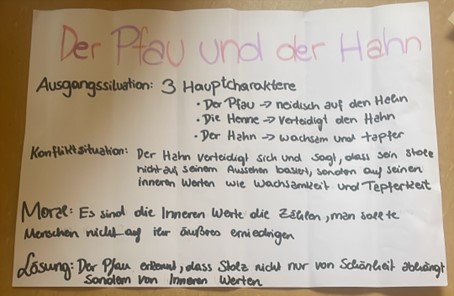 Der Pfau und der Hahn
Ausgangssituation: 3 Hauptcharaktere
• Der Pfau → neidisch auf den Hahn
• Die Henne → verteidigt den Hahn
• Der Hahn → wachsam und tapfer
Konfliktsituation: Der Hahn verteidigt sich und sagt, dass sein Stolz
nicht auf seinem Aussehen basiert, sondern auf seinen
inneren Werten wie Wachsamkeit und Tapferkeit
Moral: Es sind die Inneren Werte die Zählen, man sollte
Menschen nicht auf ihr äußeres erniedrigen
Lösung: Der Pfau erkennt, dass Stolz nicht nur von Schönheit abhängt
sondern von Inneren Werten